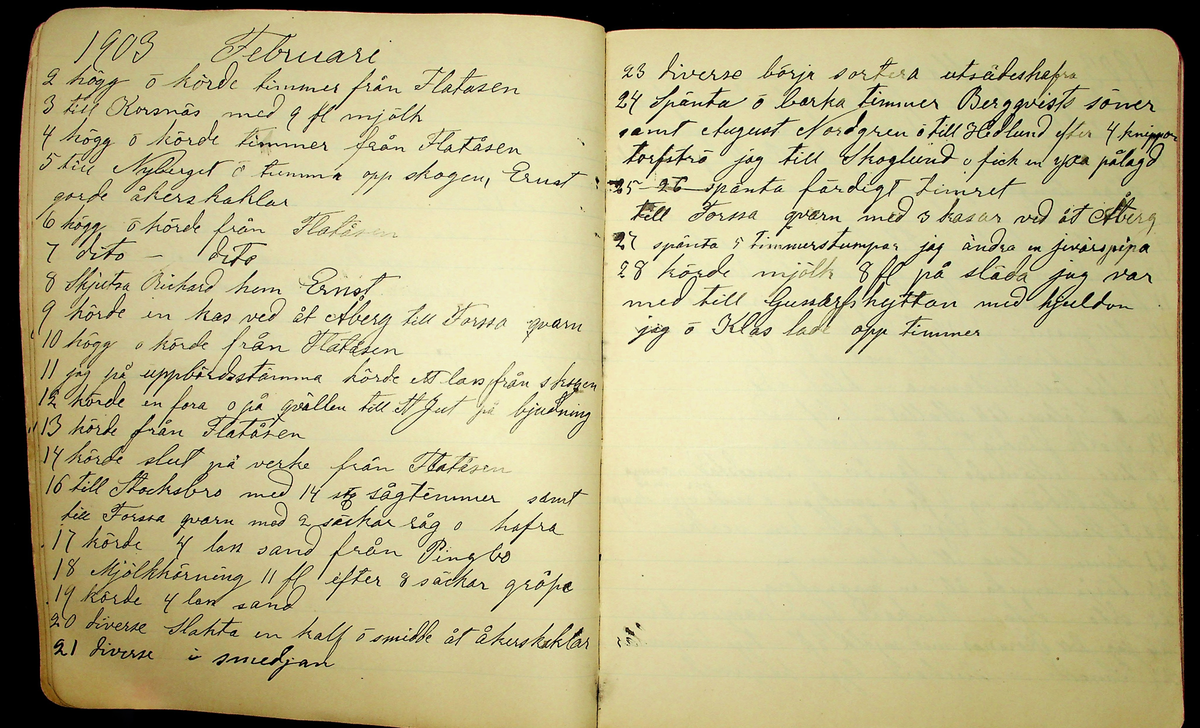 1903 Februari
2 högg ö körde timmer från Flatåsen
3 till Korsnäs med 9 fl mjölk
4 högg ö körde timmer från Flatåsen
5 till Nyberget ö tumma opp skogen, Ernst
gorde åkerskaklar
6 högg ö körde från Flatåsen
7 dito – dito
8 Skjutsa Richard hem Ernst
9 körde en kas ved åt Åberg till Forssa qvarn
10 högg o körde från Flatåsen
11 jag på uppbördsstämma körde ett lass från skogen
12 körde en fora o på qvällen till på bjudning
13 körde från Flatåsen
14 körde slut på verke från Flatåsen
16 till Stocksbro med 14 st sågtemmer samt
till Forssa qvarn med 2 säckar råg o hafra
17 körde 4 lass sand från Pingbo
18 Mjölkkörning 11 fl efter 3 säckar gröpe
19 körde 4 lass sand
20 diverse Slakta en kalf ö smidde åt åkerskaklar
21 diverse i smedjan
23 diverse börja sortera utsädeshafra
24 Spänta ö barka timmer Bergqvists söner
samt August Nordgren ö till Hedlund efter 4 knippor
torfströ jag till Skoglund o fick en yxa pålagd
25 – 26 spänta färdigt timret
till Forssa qvarn med 3 kasar ved åt Åberg
27 spänta timmerstumpar jag ändra en
28 körde mjölk 8 fl på släda jag var
med till Gussarfshyttan med hjuldon
jag ö Klas lade opp timmer